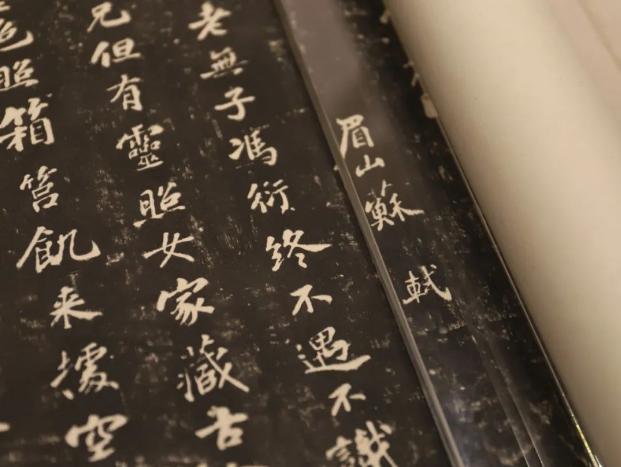 眉山蘇軾
老無子馮衍終不遇不識
兄但有靈照女家藏古
照箱筥飢来據空